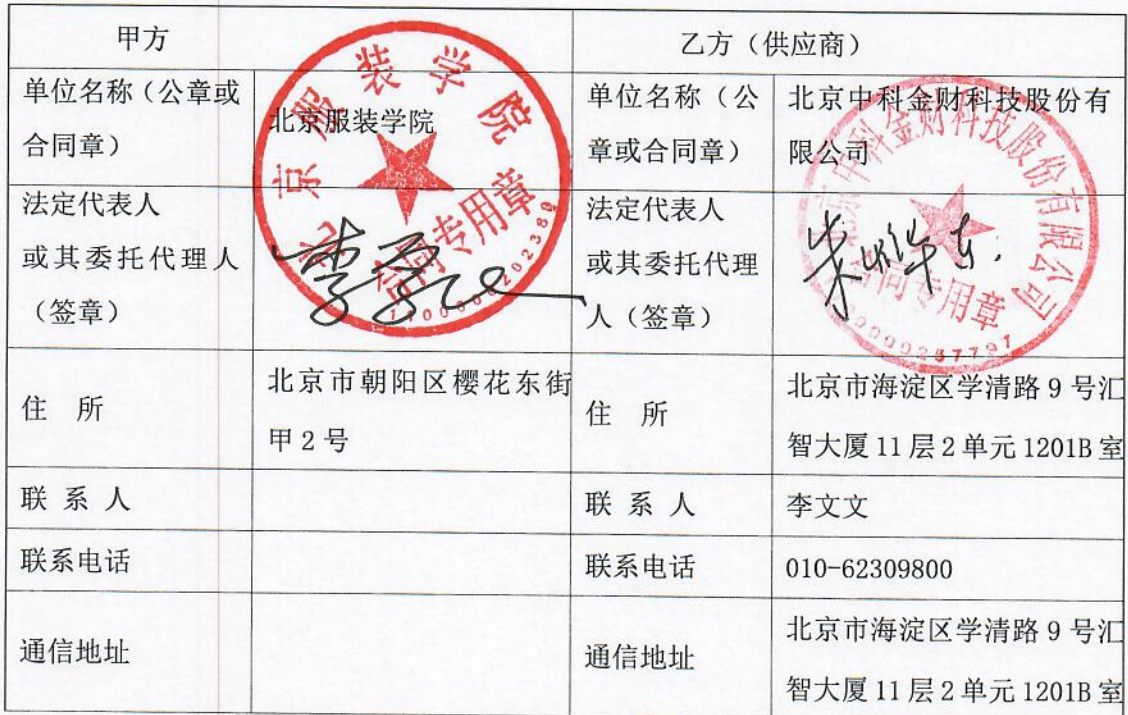 甲方
乙方（供应商）
单位名称（公章或
合同章）
北京服装学院
单位名称（公
章或合同章）
北京中科金财科技股份有
限公司
法定代表人
或其委托代理人
（签章）
法定代表人
或其委托代理
人（签章）
住 所
北京市朝阳区樱花东街
甲 2 号
住 所
北京市海淀区学清路 9 号汇
智大厦 11 层 2 单元 1201B 室
联 系 人
联 系 人
李文文
联系电话
联系电话
010-62309800
通信地址
通信地址
北京市海淀区学清路 9 号汇
智大厦 11 层 2 单元 1201B 室
北京服装学院
合同专用章
北京中科金财科技股份有限公司
合同专用章